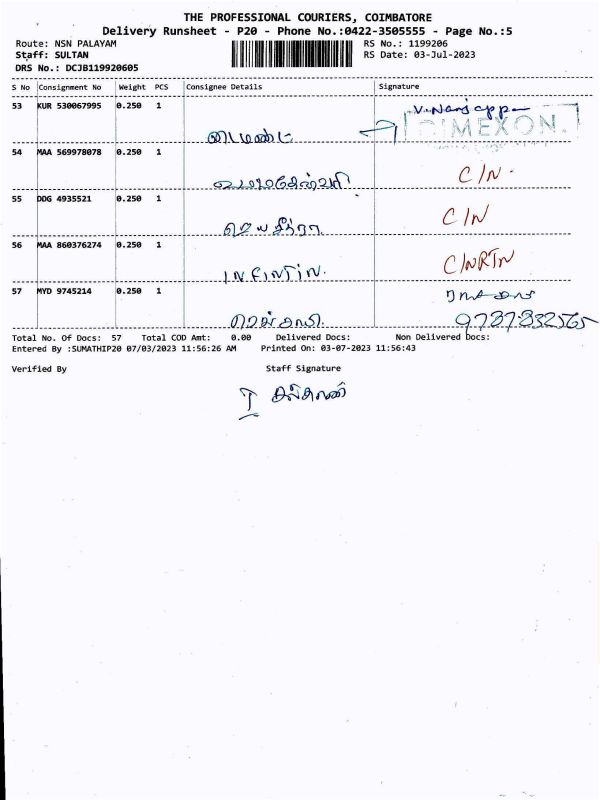 THE PROFESSIONAL COURIERS, COIMBATORE
Delivery Runsheet - P20 - Phone No.:0422-3505555 - Page No.:5
Route: NSN PALAYAM RS No.: 1199206
Staff: SULTAN RS Date: 03-Jul-2023
DRS No.: DCJB119920605
S No Consignment No Weight PCS Consignee Details Signature
53 KUR 530067995 0.250 1 V. Nanjappa
DIMEXON.
54 MAA 569978078 0.250 1 C/N.
55 DDG 4935521 0.250 1 C/N
56 MAA 860376274 0.250 1 C/NRTN
INFINTIN.
57 MYD 9745214 0.250 1
9787832565
Total No. Of Docs: 57 Total COD Amt: 0.00 Delivered Docs: Non Delivered Docs:
Entered By :SUMATHIP20 07/03/2023 11:56:26 AM Printed On: 03-07-2023 11:56:43
Verified By Staff Signature